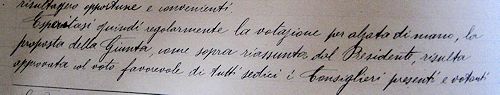 risultano opportune e convenienti.
Esperitasi quindi regolarmente la votazione per alzata di mano, la
proposta della Giunta, come sopra riassunta dal Presidente, risulta
approvata col voto favorevole di tutti sedici i Consiglieri presenti e votanti